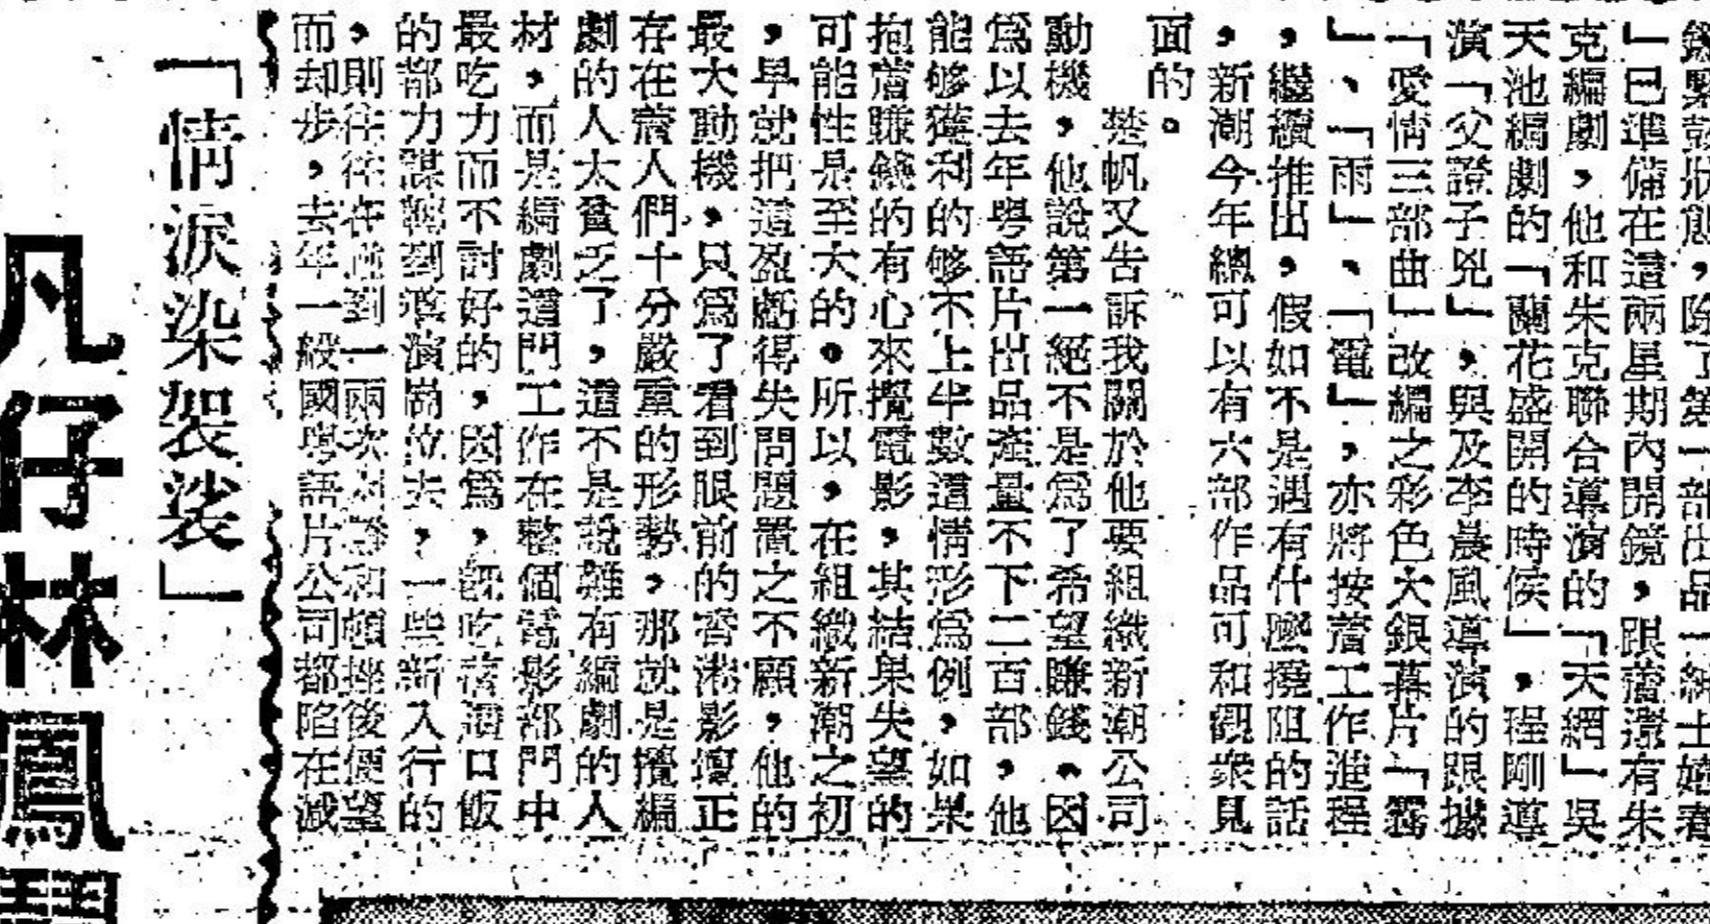 鑼緊鼓狀態，除了第一部出品「紳士嬉春
」已準備在這兩星期內開鏡，跟着還有朱
克編劇，他和朱克聯合導演的「天網」吳
天池編劇的「蘭花盛開的時侯」，程剛導
演「父證子兇」，與及李晨風導演的跟據
「愛情三部曲」改編之彩色大銀幕片「霧
」、「雨」、「電」，亦將按着工作進程
，繼續推出，假如不是遇有什麼撓阻的話
，新潮今年總可以有六部作品可和觀衆見
面的。
楚帆又告訴我關於他要組織新潮公司
動機，他說第一絕不是爲了希望賺錢。因
爲以去年粤語片出品產量不下二百部，他
能够獲利的够不上半數這情形爲例，如果
抱着賺錢的有心來攪電影，其結果失望的
可能性是至大的。所以，在組織新潮之初
，早就把這盈虧得失問題置之不願，他的
最大動機，只爲了看到眼前的香港影壇正
存在着人們十分嚴重的形勢，那就是攪編
劇的人太貧乏了，這不是說難有編劇的人
材，而是編劇這門工作在整個電影部門中
最吃力而不討好的，因爲，旣吃着這口飯
的都力謀轉到導演崗位去，一些新入行的
，則往往在碰到一兩次 和頓挫後便望
而却步，去年一般國粤語片公司都陷在減
「情淚染袈裟」
凡仔林鳳